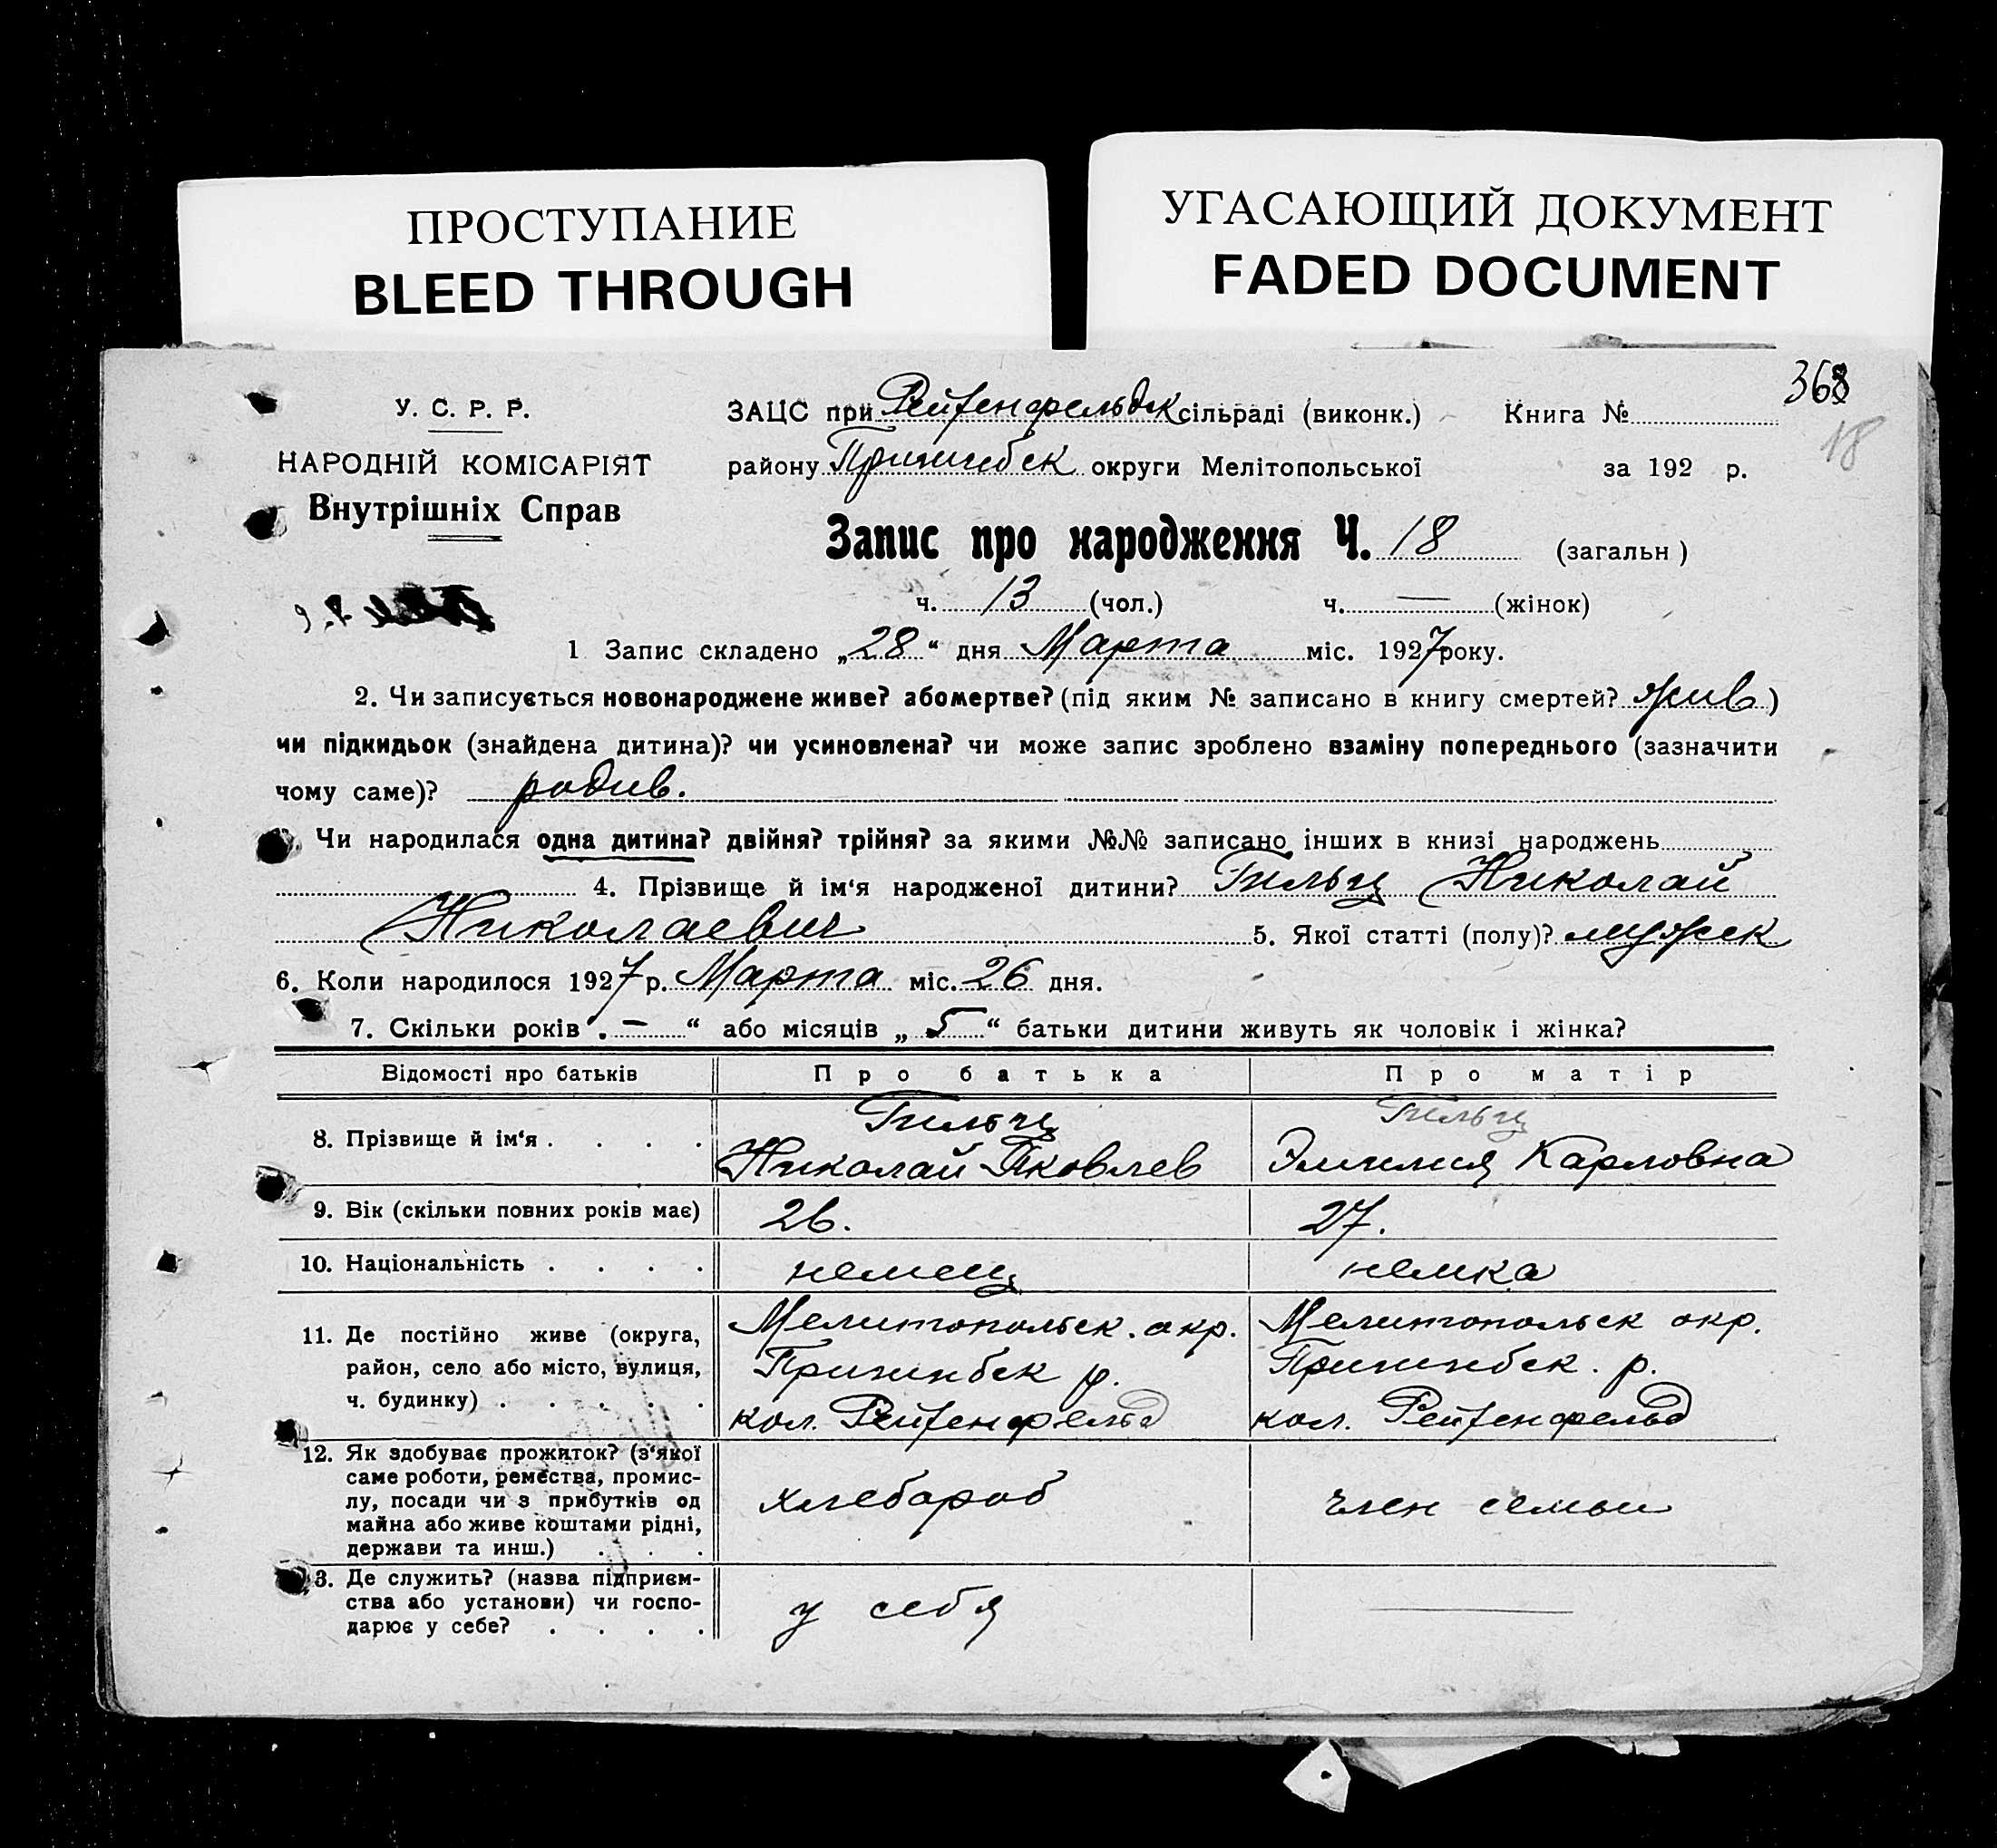 ПРОСТУПАНИЕ
BLEED THROUGH
УГАСАЮЩИЙ ДОКУМЕНТ
FADED DOCUMENT
368
18
У. С. Р. Р.
НАРОДНІЙ КОМІСАРІЯТ
Внутрішніх Справ
ЗАЦС при Рейхенфельдск сільраді (виконк.) Книга №
району Пришибск округи Мелітопольської за 192 р.
Запис про народження Ч. 18 (загальн)
ч. 13 (чол.) ч. — (жінок)
1 Запис складено „28“ дня Марта міс. 1927 року.
2. Чи записується новонароджене живе? або мертве? (під яким № записано в книгу смертей? жив)
чи підкидьок (знайдена дитина)? чи усиновлена? чи може запис зроблено взаміну попереднього (зазначити
чому саме)? родив.
Чи народилася одна дитина? двійня? трійня? за якими №№ записано інших в книзі народжень
4. Прізвище й ім‘я народженої дитини? Гильц Николай
Николаевич 5. Якої статті (полу)? мужск
6. Коли народилося 1927 р. Марта міс. 26 дня.
7. Скільки років „ — “ або місяців „ 5 “ батьки дитини живуть як чоловік і жінка?
Відомості про батьків Про батька Про матір
8. Прізвище й ім‘я . . . . Гильц Николай Яковлев Гильц Эмилия Карловна
9. Вік (скільки повних років має) 26. 27.
10. Національність . . . . немец немка
11. Де постійно живе (округа, Мелитопольск. окр. Мелитопольск окр.
район, село або місто, вулиця, Пришибск р. Пришибск. р.
ч. будинку) . . . . . кол. Рейхенфельд кол. Рейхенфельд
12. Як здобуває прожиток? (з‘якої
саме роботи, ремества, промис-
лу, посади чи з прибутків од хлебороб член семьи
майна або живе коштами рідні,
держави та инш.) . . .
3. Де служить? (назва підприєм-
ства або установи) чи госпо- у себя —
дарює у себе? . . . .